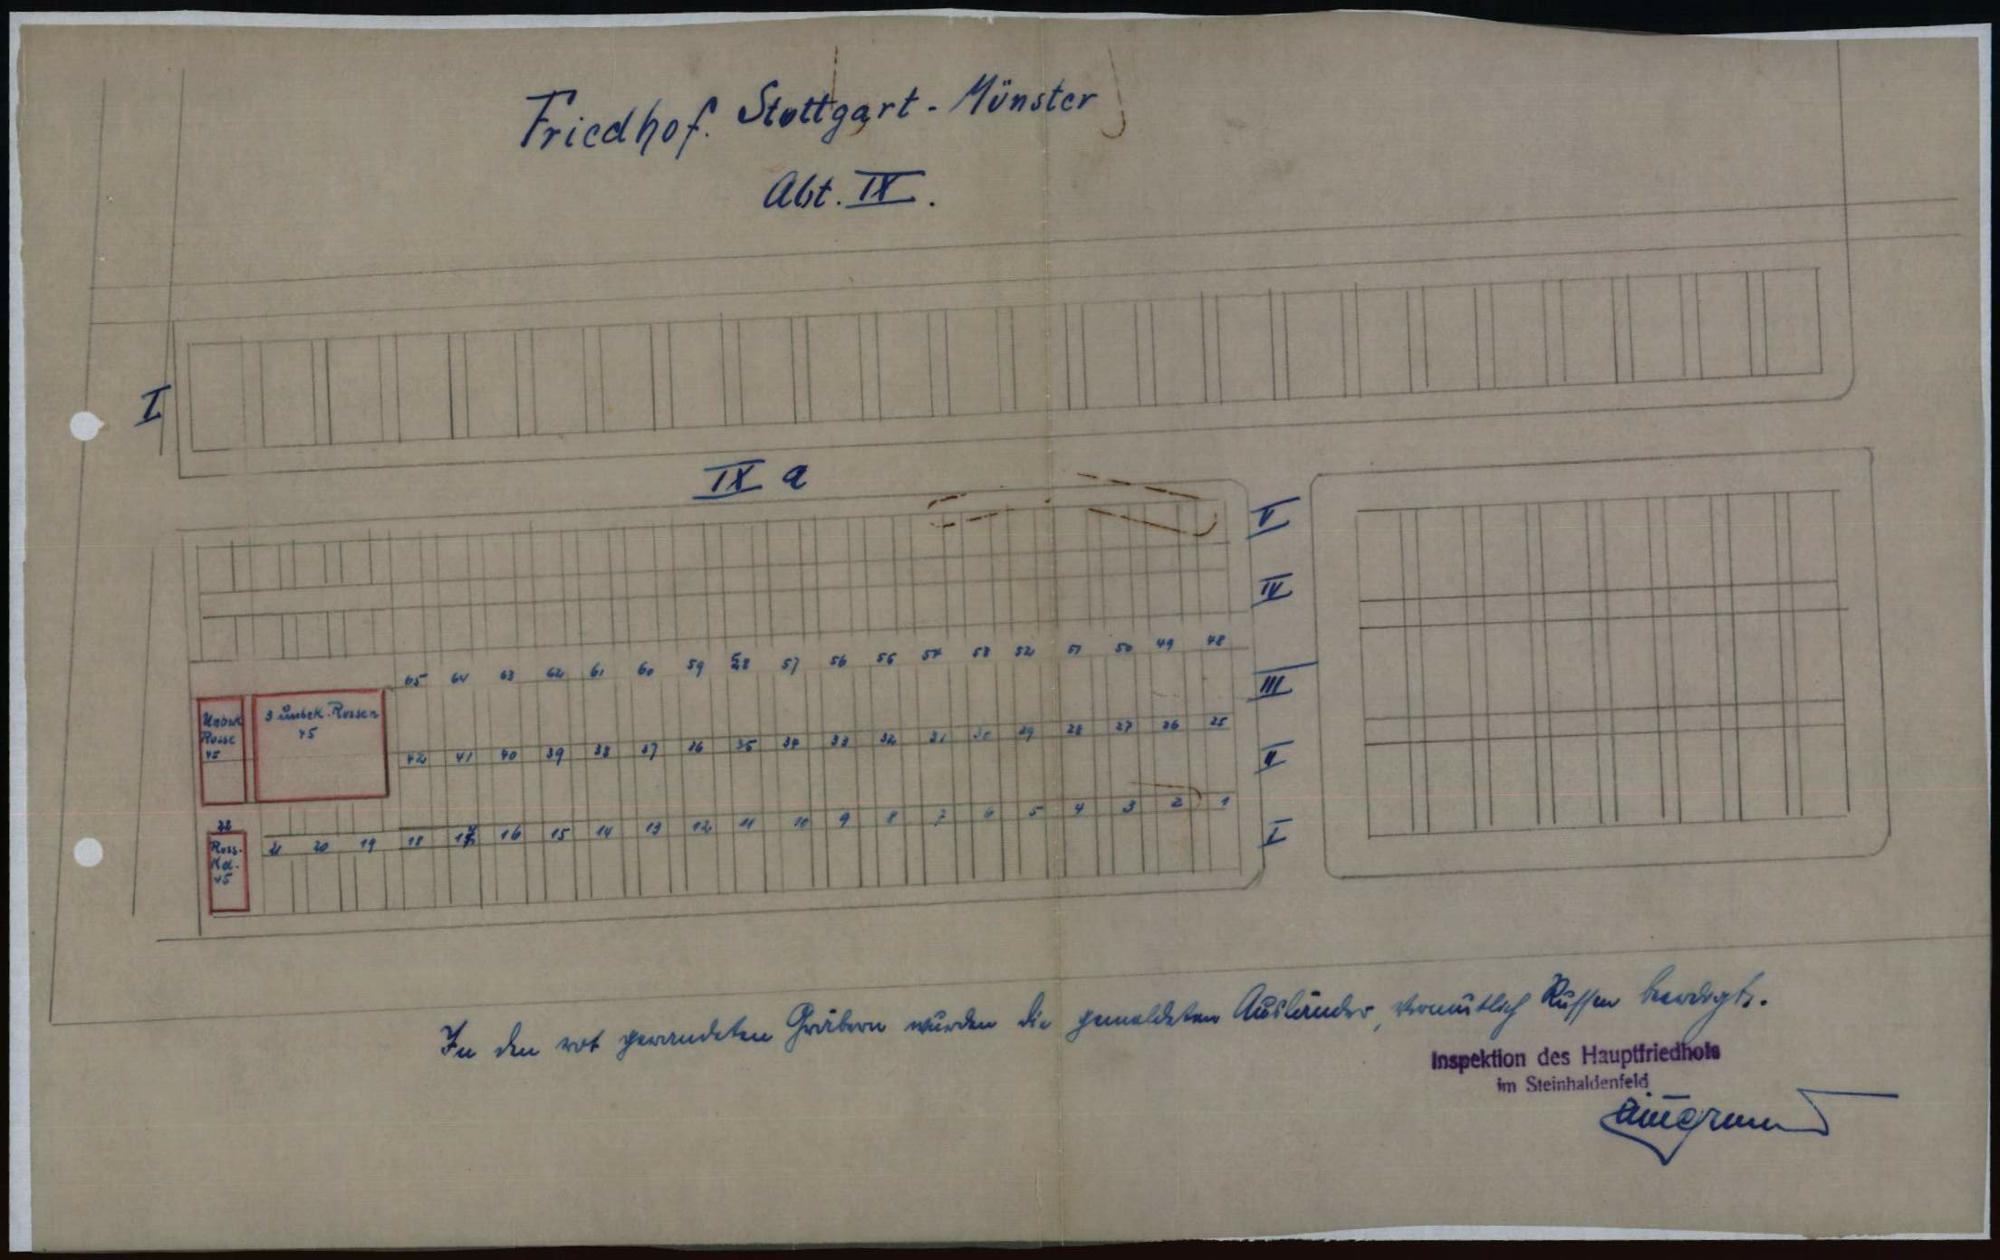 Friedhof. Stuttgart - Münster
Abt. IX.
I
IX a
V
IV
65 64 63 62 61 60 59 58 57 56 55 54 53 52 51 50 49 48
III
Unbek. Russe 45
3 unbek. Russen 45
42 41 40 39 38 37 36 35 34 33 32 31 30 29 28 27 26 25
II
22
Russ. Kd. 45
21 20 19 18 17 16 15 14 13 12 11 10 9 8 7 6 5 4 3 2 1
I
In den rot gerandeten Gräbern wurden die gemeldeten Ausländer, vermutlich Russen beerdigt.
Inspektion des Hauptfriedhofs
im Steinhaldenfeld